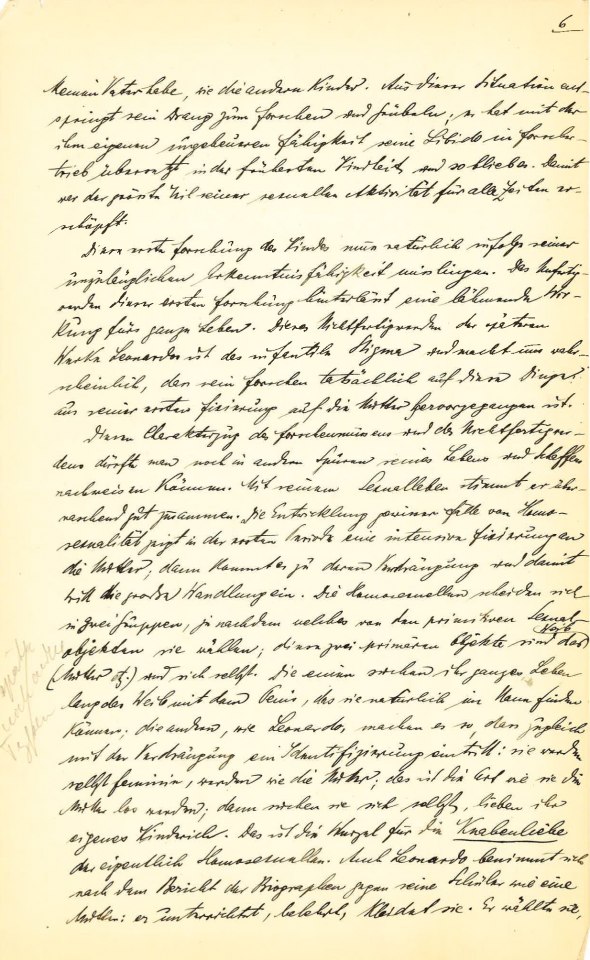 6
keinen Vater habe, wie die andern Kinder. Aus dieser Situation ent-
springt sein Drang zum Forschen und Grübeln; er hat mit der
ihm eigenen ungeheuren Fähigkeit seine Libido in Forscher-
trieb übersetzt in der frühesten Kindheit und so blieb es. Damit
war der grösste Teil seiner sexuellen Aktivität für alle Zeiten er-
schöpft.
Diese erste Forschung des Kindes muss natürlich infolge seiner
unzulänglichen Erkenntnisfähigkeit misslingen. Das Unfertig-
werden dieser ersten Forschung hinterlässt eine lähmende Wir-
kung fürs ganze Leben. Dieses Nichtfertigwerden der späteren
Werke Leonardos ist das infantile Stigma und macht uns wahr-
scheinlich, dass sein Forschen tatsächlich auf diese Dinge
aus seiner ersten Fixierung auf die Mutter hervorgegangen ist.
Diesen Charakterzug des Forschenmüssens und des Nichtfertigwer-
dens dürfte man noch in andern Spuren seines Lebens und Schaffens
nachweisen können. Mit seinem Sexualleben stimmt er über-
raschend gut zusammen. Die Entwicklung gewisser Fälle von Homo-
sexualität zeigt in der ersten Periode eine intensive Fixierung an
die Mutter; dann kommt es zu deren Verdrängung und damit
tritt die grosse Wandlung ein. Die Homosexuellen scheiden sich
in zwei Gruppen, je nachdem welches von den primären Sexual-
objekten sie wählen; diese zwei primären Objekte sind das Weib
(Mutter etz.) und sich selbst. Die einen suchen ihr ganzes Leben
lang das Weib mit dem Penis, das sie natürlich im Mann finden
können; die andern, wie Leonardo, machen es so, dass zugleich
mit der Verdrängung ein Identifizierung eintritt: sie werden
selbst feminin, werden wie die Mutter; das ist die Art wie sie die
Mutter los werden; dann suchen sie sich selbst, lieben ihr
eigenes Kinderich. Das ist die Wurzel für die Knabenliebe
der eigentlich Homosexuellen. Auch Leonardo benimmt sich
nach dem Bericht der Biographen gegen seine Schüler wie eine
Mutter: er unterrichtet, belehrt, kleidet sie. Er wählte sie,
Typen